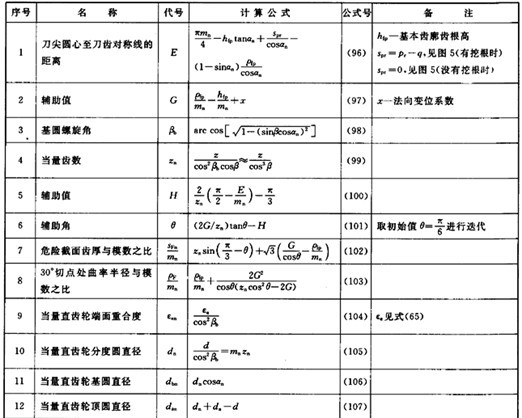 序号 名 称 代号 计 算 公 式 公式号 备 注
1 刀尖圆心至刀齿对称线的距离 E πmₙ/4 − h_fp tanαₙ + s_pr/cosαₙ − (1−sinαₙ) ρ_fp/cosαₙ (96) h_fp—基本齿廓齿根高
s_pr = p_r − q,见图5(有挖根时)
s_pr = 0,见图5(没有挖根时)
2 辅助值 G ρ_fp/mₙ − h_fp/mₙ + x (97) x—法向变位系数
3 基圆螺旋角 β_b arc cos[√1−(sinβcosαₙ)²] (98)
4 当量齿数 zₙ z/cos²β_b cosβ ≈ z/cos³β (99)
5 辅助值 H 2/zₙ (π/2 − E/mₙ) − π/3 (100)
6 辅助角 θ (2G/zₙ)tanθ−H (101) 取初始值 θ=π/6 进行迭代
7 危险截面齿厚与模数之比 s_Fn/mₙ zₙ sin(π/3 − θ) + √3(G/cosθ − ρ_fp/mₙ) (102)
8 30°切点处曲率半径与模数之比 ρ_F/mₙ ρ_fp/mₙ + 2G²/cosθ(zₙcos²θ−2G) (103)
9 当量直齿轮端面重合度 ε_αn ε_α/cos²β_b (104) ε_α见式(65)
10 当量直齿轮分度圆直径 dₙ d/cos²β_b = mₙzₙ (105)
11 当量直齿轮基圆直径 d_bn dₙcosαₙ (106)
12 当量直齿轮顶圆直径 d_an dₙ+dₐ−d (107)